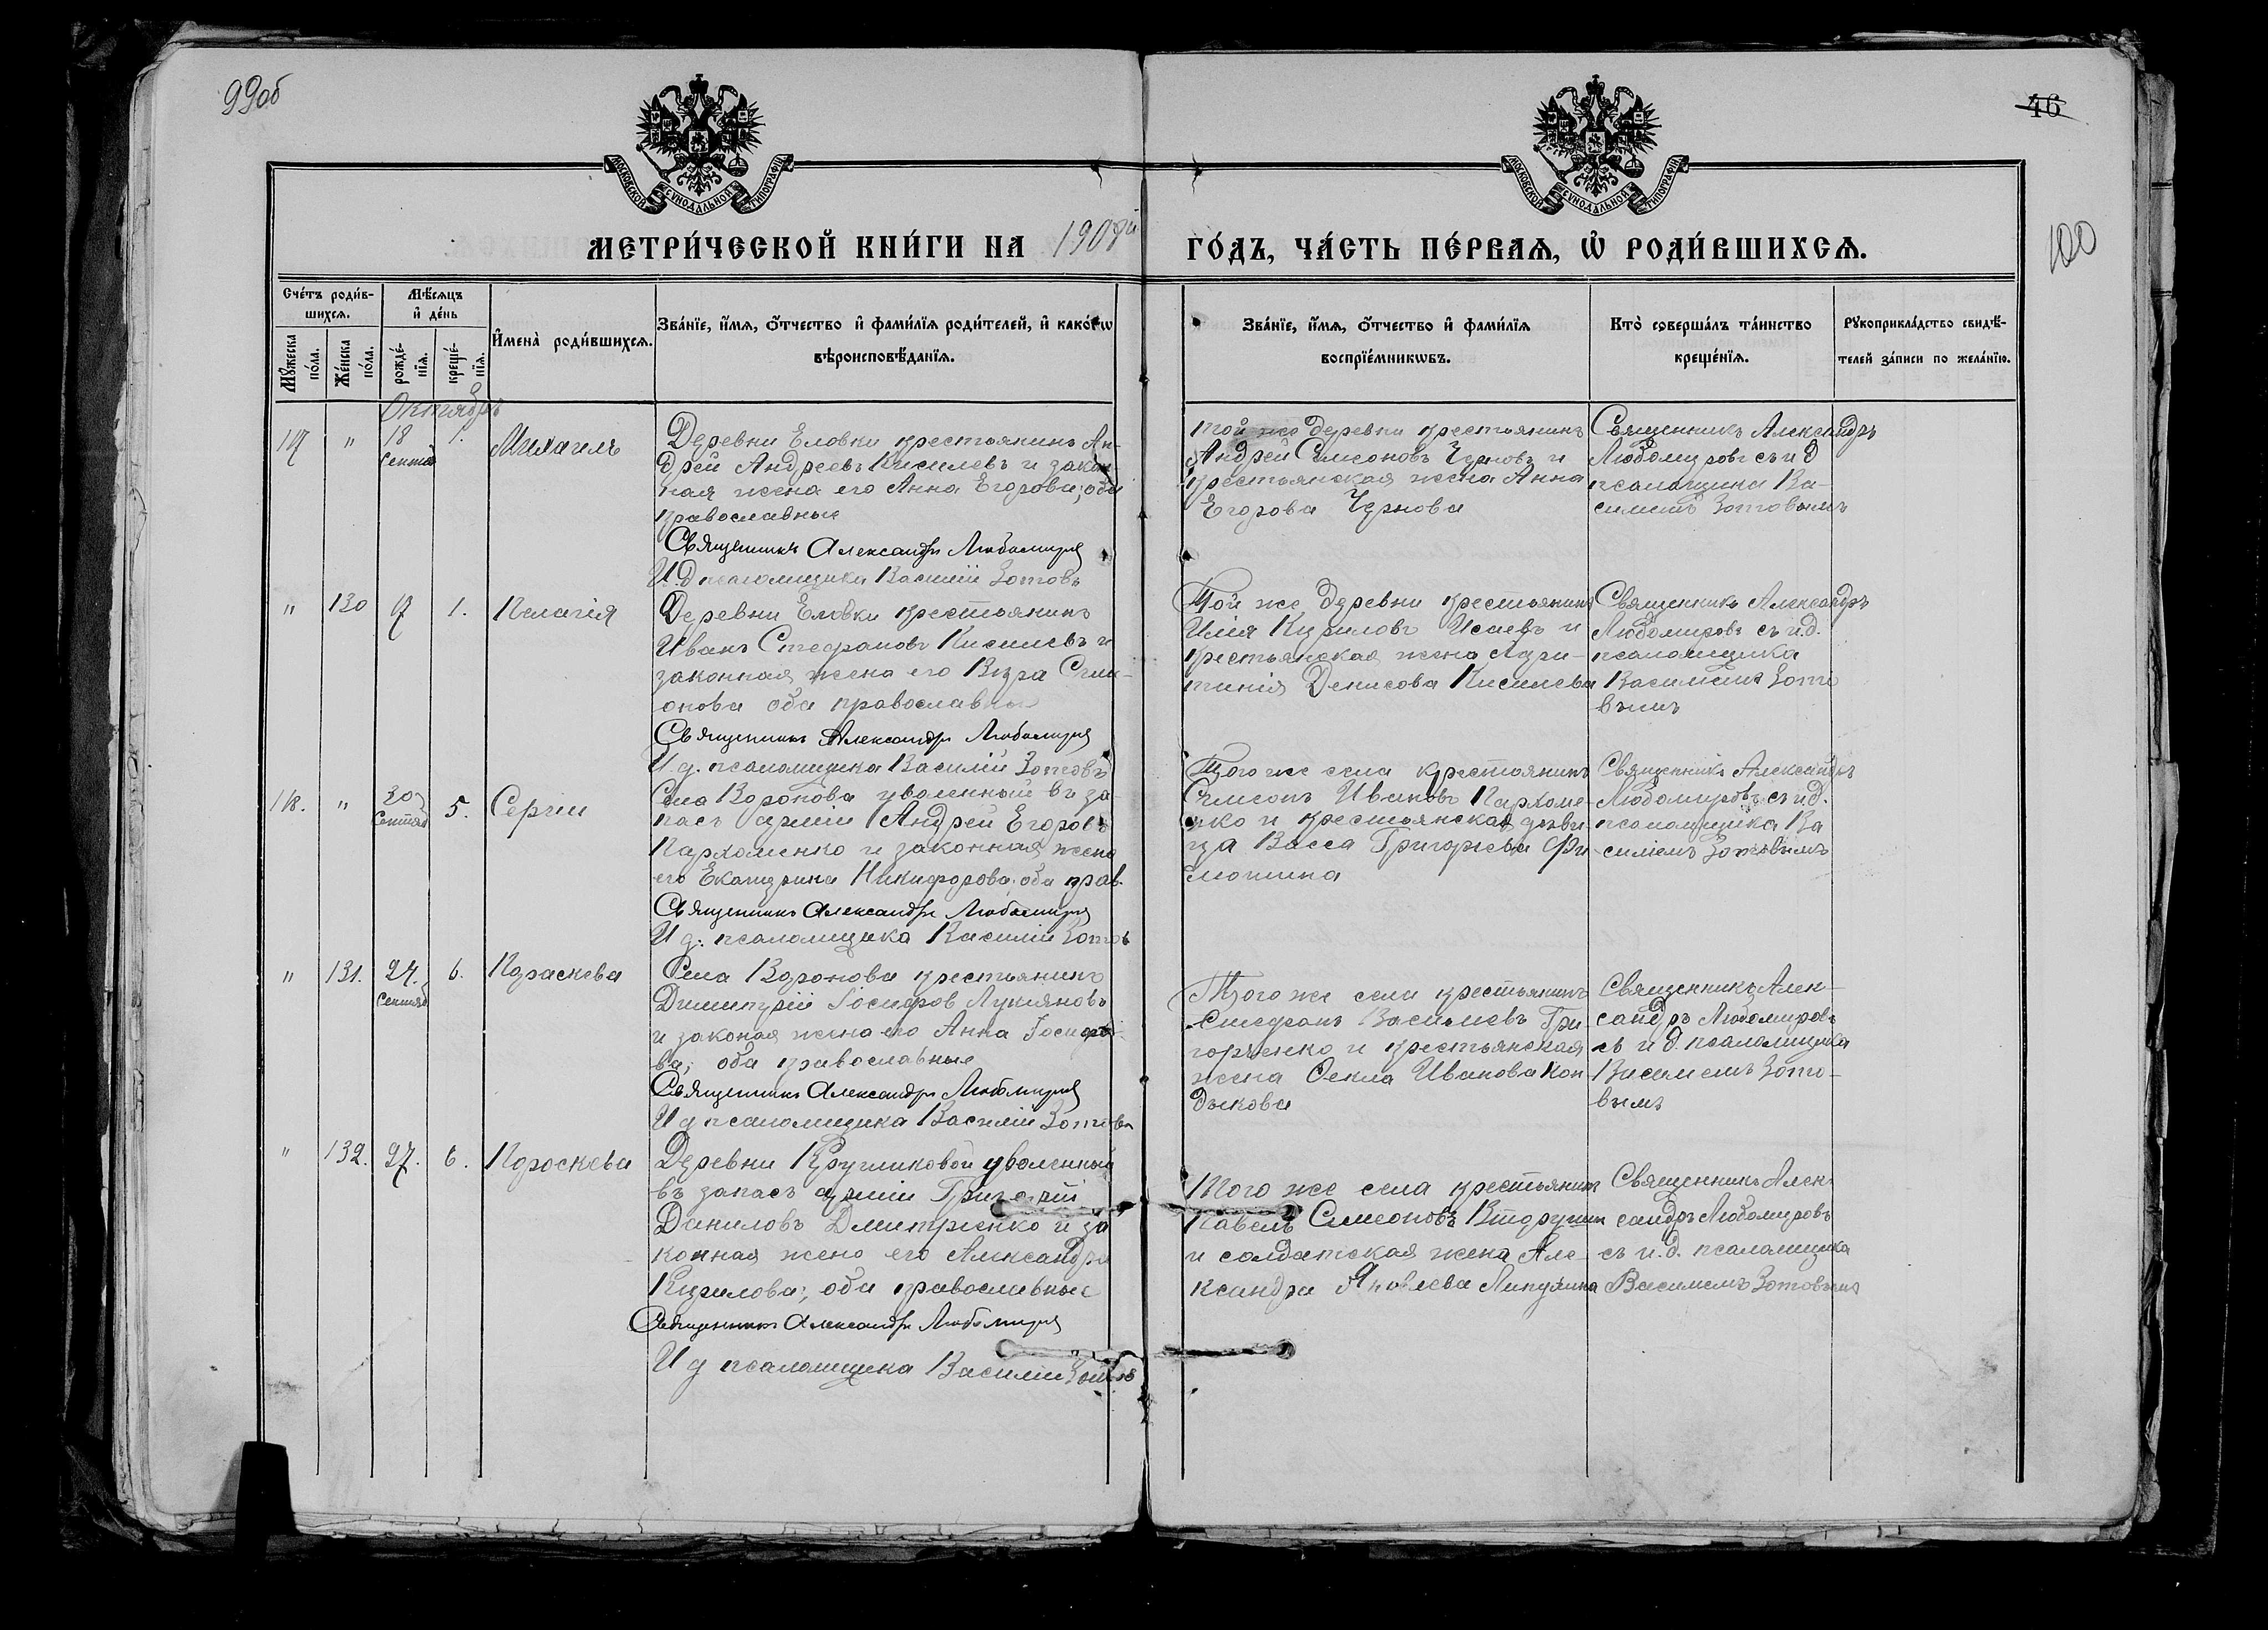 99об
46
100
МОСКОВСКОЙ СУНОДАЛЬНОЙ ТИПОГРАФІИ
МОСКОВСКОЙ СУНОДАЛЬНОЙ ТИПОГРАФІИ
МЕТРИ́ЧЕСКОЙ КНИ́ГИ НА 1908й ГО́ДЪ, ЧА́СТЬ ПЕ́РВАѦ, Ѡ҆ РОДИ́ВШИХСѦ.
Сче́тъ роди́в-
шихсѧ.
Мѣ́сѧцъ
и҆ де́нь
Мꙋ́жеска по́ла.
Же́нска по́ла.
рожде́-
нїѧ.
креще́-
нїѧ.
И҆мена̀ роди́вшихсѧ.
Зва́нїе, и҆́мѧ, ѻ҆́тчество и҆ фами́лїѧ роди́телей, и҆ како́гѡ
вѣроисповѣ́данїѧ.
Зва́нїе, и҆́мѧ, ѻ҆́тчество и҆ фами́лїѧ
воспрїе́мникѡвъ.
Кто̀ соверша́лъ та́инство
креще́нїѧ.
Рꙋкоприкла́дство свидѣ́-
телей за́писи по жела́нїю.
Октябрь
117 " 18 Сентяб 1. Михаилъ
Деревни Еловки крестьянинъ Ан-
дрей Андреевъ Киселевъ и закон-
ная жена его Анна Егорова; оба
православные
Священникъ Александръ Любомировъ
И. д псаломщика Василій Зотовъ
той же деревни крестьянинъ
Андрей Симеоновъ Черновъ и
крестьянская жена Анна
Егорова Чернова
Священникъ Александръ
Любомировъ съ и д
псаломщика Ва-
силіемъ Зотовымъ
" 130 7 1. Пелагія
Деревни Еловки крестьянинъ
Иванъ Стефановъ Киселевъ и
законная жена его Вѣра Симе-
онова оба православные
Священникъ Александръ Любомировъ
И. д. псаломщика Василій Зотовъ
Той же деревни крестьянинъ
Илія Кириловъ Исаевъ и
крестьянская жена
Денисова Киселева
Священникъ Александръ
Любомировъ съ и. д.
псаломщика
Василіемъ Зото
вымъ
118. " 30 Сентяб 5. Сергій
Села Воронова уволенный въ за-
пасъ арміи Андрей Егоровъ
Пархоменко и законная жена
его Екатерина Никифорова; оба прав.
Священникъ Александръ Любомировъ
И д. псаломщика Василій Зотовъ
Того же села крестьянинъ
Симеонъ Ивановъ Пархоме-
нко и крестьянская дѣви-
ца Васса Григорьева Фи
Священникъ Александръ
Любомировъ съ и д.
псаломщика Ва
силіемъ Зотовымъ
" 131. 24. Сентяб 6. Параскева
Села Воронова крестьянинъ
Димитрій Іосифов Лукьяновъ
и законая жена его Анна Іосифо-
ва; оба православные
Священникъ Александръ Любомировъ
И д псаломщика Василій Зотовъ
Того же села крестьянинъ
Стефанъ Васильевъ Гри-
горъенко и крестьянская
жена Ѳекла Иванова Кон
дыкова
Священникъ Алек-
сандръ Любомировъ
съ и д. псаломщика
Василіемъ Зото-
вымъ
" 132. 27. 6. Пороскева
Деревни Кругликовой уволенный
въ запасъ арміи Григорій
Даниловъ Дмитріенко и за
конная жена его Александра
Кирилова; оба православные
Священникъ Александръ Любомировъ
И д псаломщика Василій Зотовъ
Того же села крестьянинъ
Павелъ Симеоновъ
и солдатская жена Але-
ксандра Яковлева
Священникъ Алек
сандръ Любомировъ
съ и. д. псаломщика
Василіемъ Зотовымъ